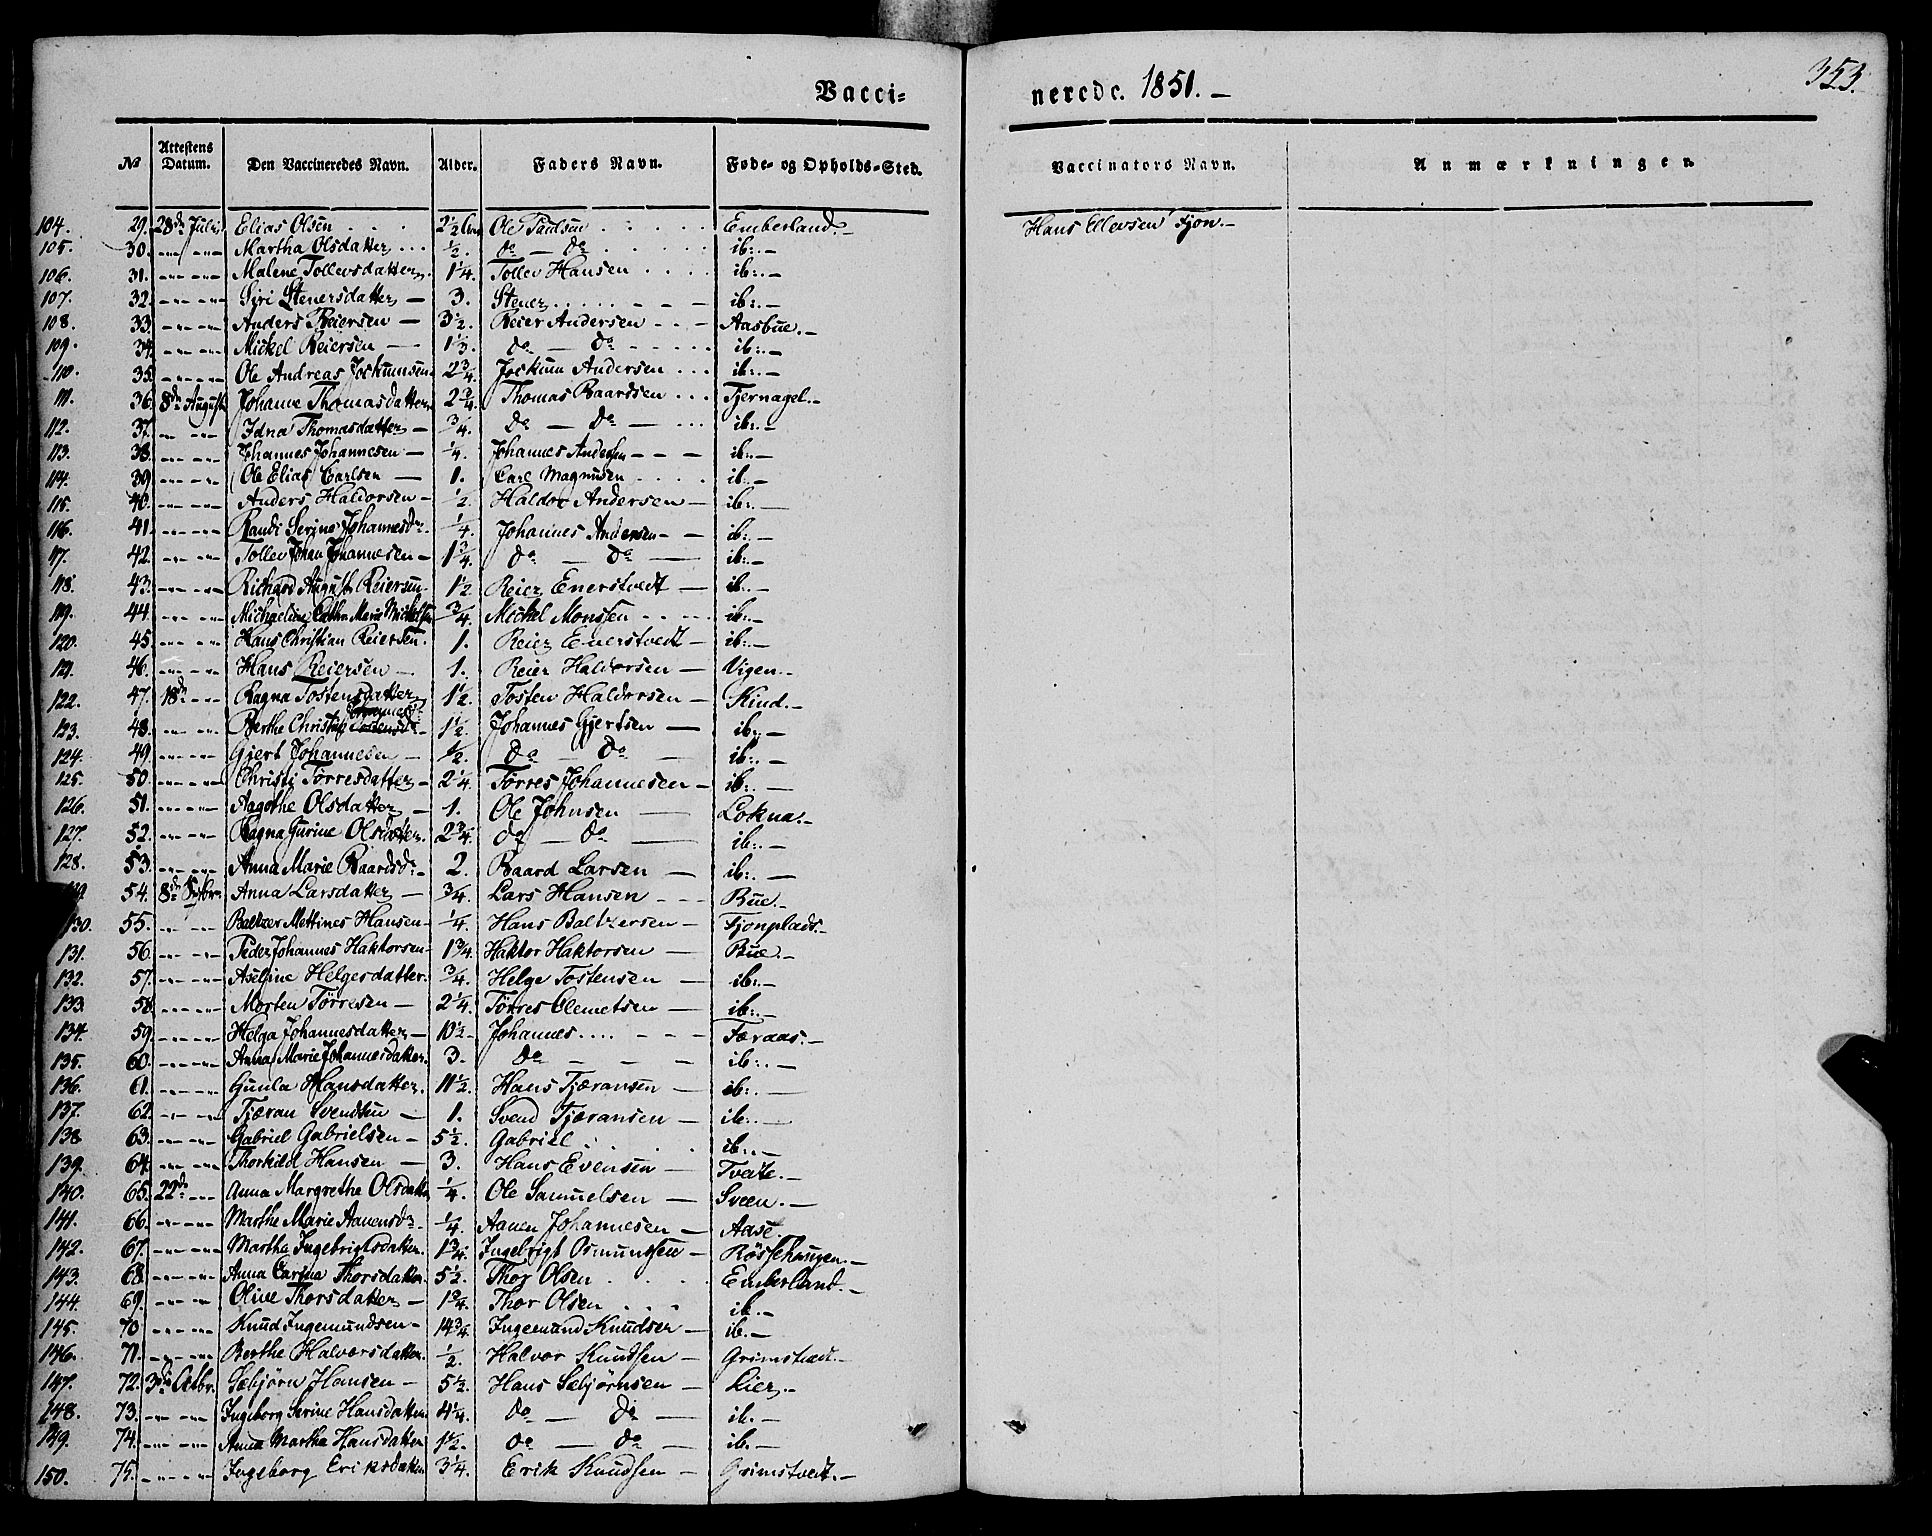 Vacci- nerede. 1851. — 353.
№ Attestens Datum. Den Vaccineredes Navn. Alder. Faders Navn. Føde- og Opholds-Sted. Vaccinators Navn. Anmærkningen
104. 29. 28de Juli Elias Olsen . . . 2½ Ole Paulsen . . . . . Emberland. — Hans Ellevsen Fjon. —
105. 30. — — Martha Olsdatter . . . ½. do — do . . . . . ib: —
106. 31. — — Malene Tollevsdatter. 1¼. Tollev Hansen . . . . ib: —
107. 32. — — Siri Stenersdatter — 3. Stener . . . . . — — — ib: —
108. 33. — — Anders Reiersen — 3½. Reier Andersen — — — Aasbue. —
109. 34. — — Mickel Reiersen — 1⅓. do — do — — — ib: —
110. 35. — — Ole Andreas Jockumsen. 2¾. Jockum Andersen . . . ib: —
111. 36. 8de August Johanne Thomasdatter. 2¾. Thomas Baardsen . . . Tjernagel. —
112. 37. — — Edna Thomasdatter — ¾. do — do — . . . ib: —
113. 38. — — Johannes Johannesen — ¼. Johannes Andersen — — — ib: —
114. 39. — — Ole Elias Carlsen — 1. Carl Magnusen . . . . ib: —
115. 40. — — Anders Haldorsen — ½. Haldor Andersen — ib: —
116. 41. — — Randi Serine Johannesdr. ¼. Johannes Andersen — — ib: —
117. 42. — — Tollev Johan Johannesen — 1¾. do — do — ib: —
118. 43. — — Richard August Reiersen. 1½ Reier Enerstvedt — ib: —
119. 44. — — Michaeline Cathr. Marie Mickels ¾. Mickel Monssen . . . . . ib: —
120. 45. — — Hans Christian Reiersen. 1. Reier Enerstvedt — ib: —
121. 46. — — Hans Reiersen — 1. Reier Haldorsen — Vigen. —
122. 47. 18de — Ragna Tostensdatter 1½. Tosten Haldorsen — Kind. —
123. 48. — — Berthe Christine Johannesd. 1½. Johannes Gjertsen — ib: —
124. 49. — — Gjert Johannesen — ½. do — do — ib: —
125. 50. — — Christi Tørresdatter — 2¼. Tørres Johannesen — ib: —
126. 51. — — Aagothe Olsdatter — 1. Ole Johnsen — Lokna. —
127. 52. — — Ragna Gurine Olsdatter. 2¾. do — do — ib: —
128. 53. — — Anna Marie Baardsdr. — 2. Baard Larsen — ib: —
54. 8de Septbr. Anna Larsdatter — ¾. Lars Hansen — — — Bue. —
130. 55. — — Baltzer Mettines Hansen — ¼. Hans Baltzersen — Fjonplads. —
131. 56. — — Peder Johannes Haktorsen — 1¾. Haktor Haktorsen — Bue. —
132. 57. — — Aseline Helgesdatter. ¾. Helge Tostensen — ib: —
133. 58. — — Morten Tørresen — 2¼. Tørres Clemetsen — ib: —
134. 59. — — Helga Johannesdatter — 10½ Johannes . . . . — — — Færaas. —
135. 60. — — Anna Marie Johannesdatter. 3. do — — — ib: —
136. 61. — — Gunla Hansdatter. 11½. Hans Tjæransen — ib: —
137. 62. — — Tjæran Svendsen — 1. Svend Tjæransen — ib: —
138 63. — — Gabriel Gabrielsen — 5½. Gabriel . . . ib: —
139. 64. — — Thorkild Hansen — 3. Hans Evensen — Tveite. —
140. 65. 22de — Anna Margrethe Olsdatter ¼. Ole Samuelsen — Sveen. —
141. 66. — — Marthe Marie Aanensdr. ¼. Aanen Johannesen — Aase.
142. 67. — — Martha Ingebrigtsdatter. 1¾. Ingebrigt Osmundsen — Røssehaugen. —
143. 68. — — Anna Carina Thorsdatter. 5½. Thor Olsen . . . . Emberland. —
144. 69. — — Olive Thorsdatter — 1¾. Thor Olsen . . . ib. —
145. 70 — — Knud Ingemundsen — 14¾. Ingemund Knudsen — ib. —
146. 71. — — Berthe Halvorsdatter. ½. Halvor Knudsen — Grimstvedt. —
147. 72. 3de Octbr. Sæbjørn Hansen — 5½. Hans Sæbjørnsen — Lier. —
148. 73. — — Ingeborg Serine Hansdatter. 4¼. do — do — ib. —
149. 74. — — Anna Martha Hansdatter 1½. do — do — ib. —
150. 75. — — Ingeborg Eriksdatter 3¼. Erik Knudsen — Grimstvedt. —